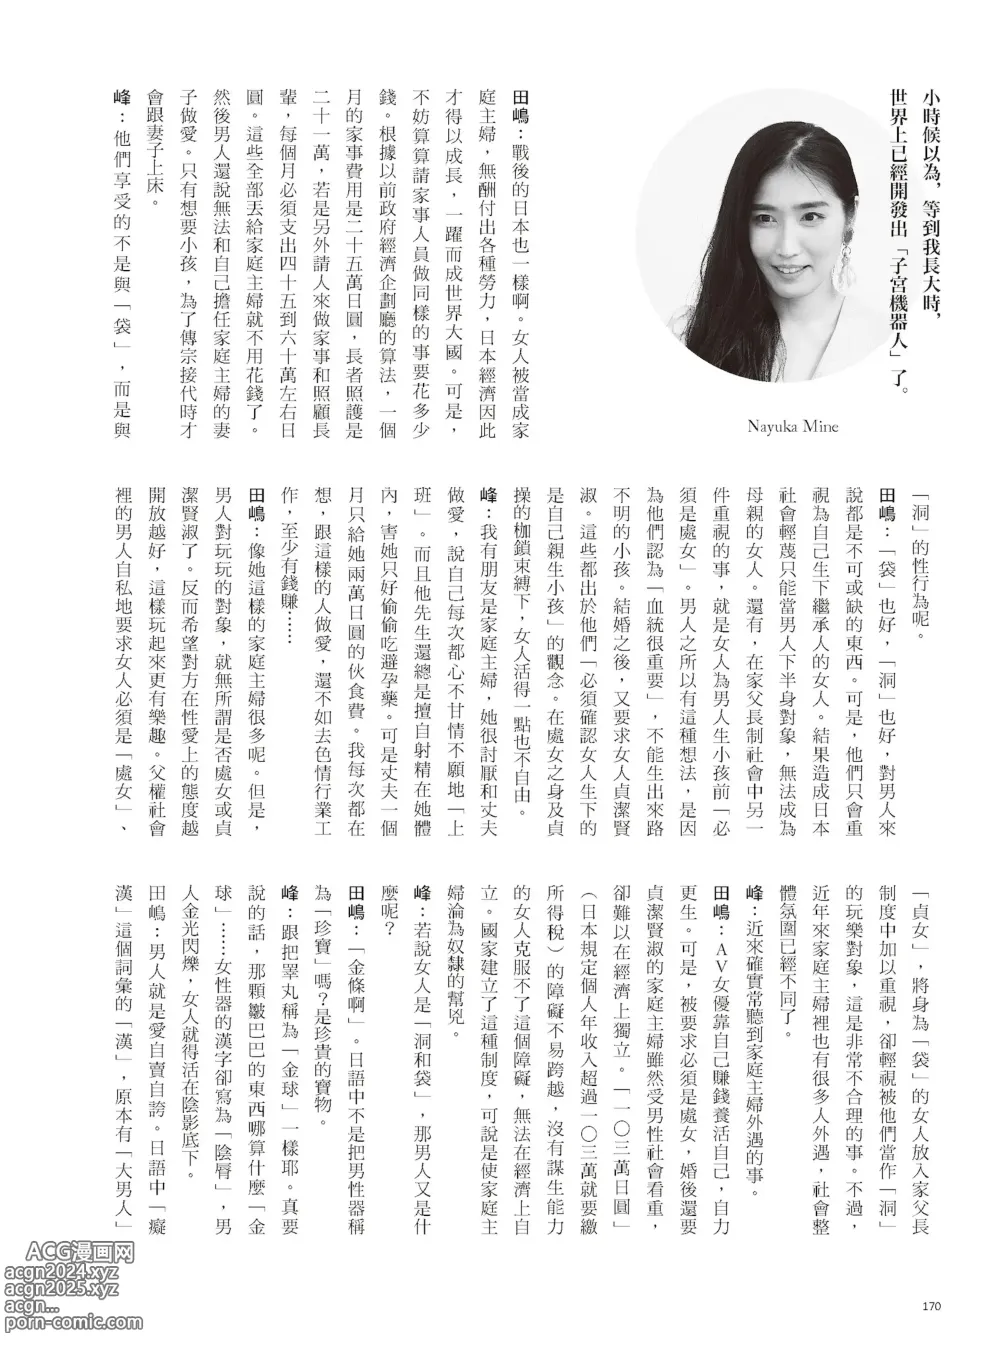 小時候以為，等到我長大時，
世界上已經開發出「子宮機器人」了。
Nayuka Mine
田嶋：戰後的日本也一樣啊。女人被當成家
庭主婦，無酬付出各種勞力，日本經濟因此
才得以成長，一躍而成世界大國。可是，
不妨算算請家事人員做同樣的事要花多少
錢。根據以前政府經濟企劃廳的算法，一個
月的家事費用是二十五萬日圓，長者照護是
二十一萬，若是另外請人來做家事和照顧長
輩，每個月必須支出四十五到六十萬左右日
圓。這些全部丟給家庭主婦就不用花錢了。
然後男人還說無法和自己擔任家庭主婦的妻
子做愛。只有想要小孩，為了傳宗接代時才
會跟妻子上床。
峰：他們享受的不是與「袋」，而是與
「洞」的性行為呢。
田嶋：「袋」也好，「洞」也好，對男人來
說都是不可或缺的東西。可是，他們只會重
視為自己生下繼承人的女人。結果造成日本
社會輕蔑只能當男人下半身對象，無法成為
母親的女人。還有，在家父長制社會中另一
件重視的事，就是女人為男人生小孩前「必
須是處女」。男人之所以有這種想法，是因
為他們認為「血統很重要」，不能生出來路
不明的小孩。結婚之後，又要求女人貞潔賢
淑。這些都出於他們「必須確認女人生下的
是自己親生小孩」的觀念。在處女之身及貞
操的枷鎖束縛下，女人活得一點也不自由。
峰：我有朋友是家庭主婦，她很討厭和丈夫
做愛，說自己每次都心不甘情不願地「上
班」。而且他先生還總是擅自射精在她體
內，害她只好偷偷吃避孕藥。可是丈夫一個
月只給她兩萬日圓的伙食費。我每次都在
想，跟這樣的人做愛，還不如去色情行業工
作，至少有錢賺……
田嶋：像她這樣的家庭主婦很多呢。但是，
男人對玩玩的對象，就無所謂是否處女或貞
潔賢淑了。反而希望對方在性愛上的態度越
開放越好，這樣玩起來更有樂趣。父權社會
裡的男人自私地要求女人必須是「處女」、
「貞女」，將身為「袋」的女人放入家父長
制度中加以重視，卻輕視被他們當作「洞」
的玩樂對象，這是非常不合理的事。不過，
近年來家庭主婦裡也有很多人外遇，社會整
體氛圍已經不同了。
峰：近來確實常聽到家庭主婦外遇的事。
田嶋：AV女優靠自己賺錢養活自己，自力
更生。可是，被要求必須是處女，婚後還要
貞潔賢淑的家庭主婦雖然受男性社會看重，
卻難以在經濟上獨立。「一〇三萬日圓」
（日本規定個人年收入超過一〇三萬就要繳
所得稅）的障礙不易跨越，沒有謀生能力
的女人克服不了這個障礙，無法在經濟上自
立。國家建立了這種制度，可說是使家庭主
婦淪為奴隸的幫兇。
峰：若說女人是「洞和袋」，那男人又是什
麼呢？
田嶋：「金條啊」。日語中不是把男性器稱
為「珍寶」嗎？是珍貴的寶物。
峰：跟把睪丸稱為「金球」一樣耶。真要
說的話，那顆皺巴巴的東西哪算什麼「金
球」……女性器的漢字卻寫為「陰脣」，男
人金光閃爍，女人就得活在陰影底下。
田嶋：男人就是愛自賣自誇。日語中「癡
漢」這個詞彙的「漢」，原本有「大男人」
ACG漫画网
acgn2024.xyz
acgn2025.xyz
acgn...
porn-comic.com
170